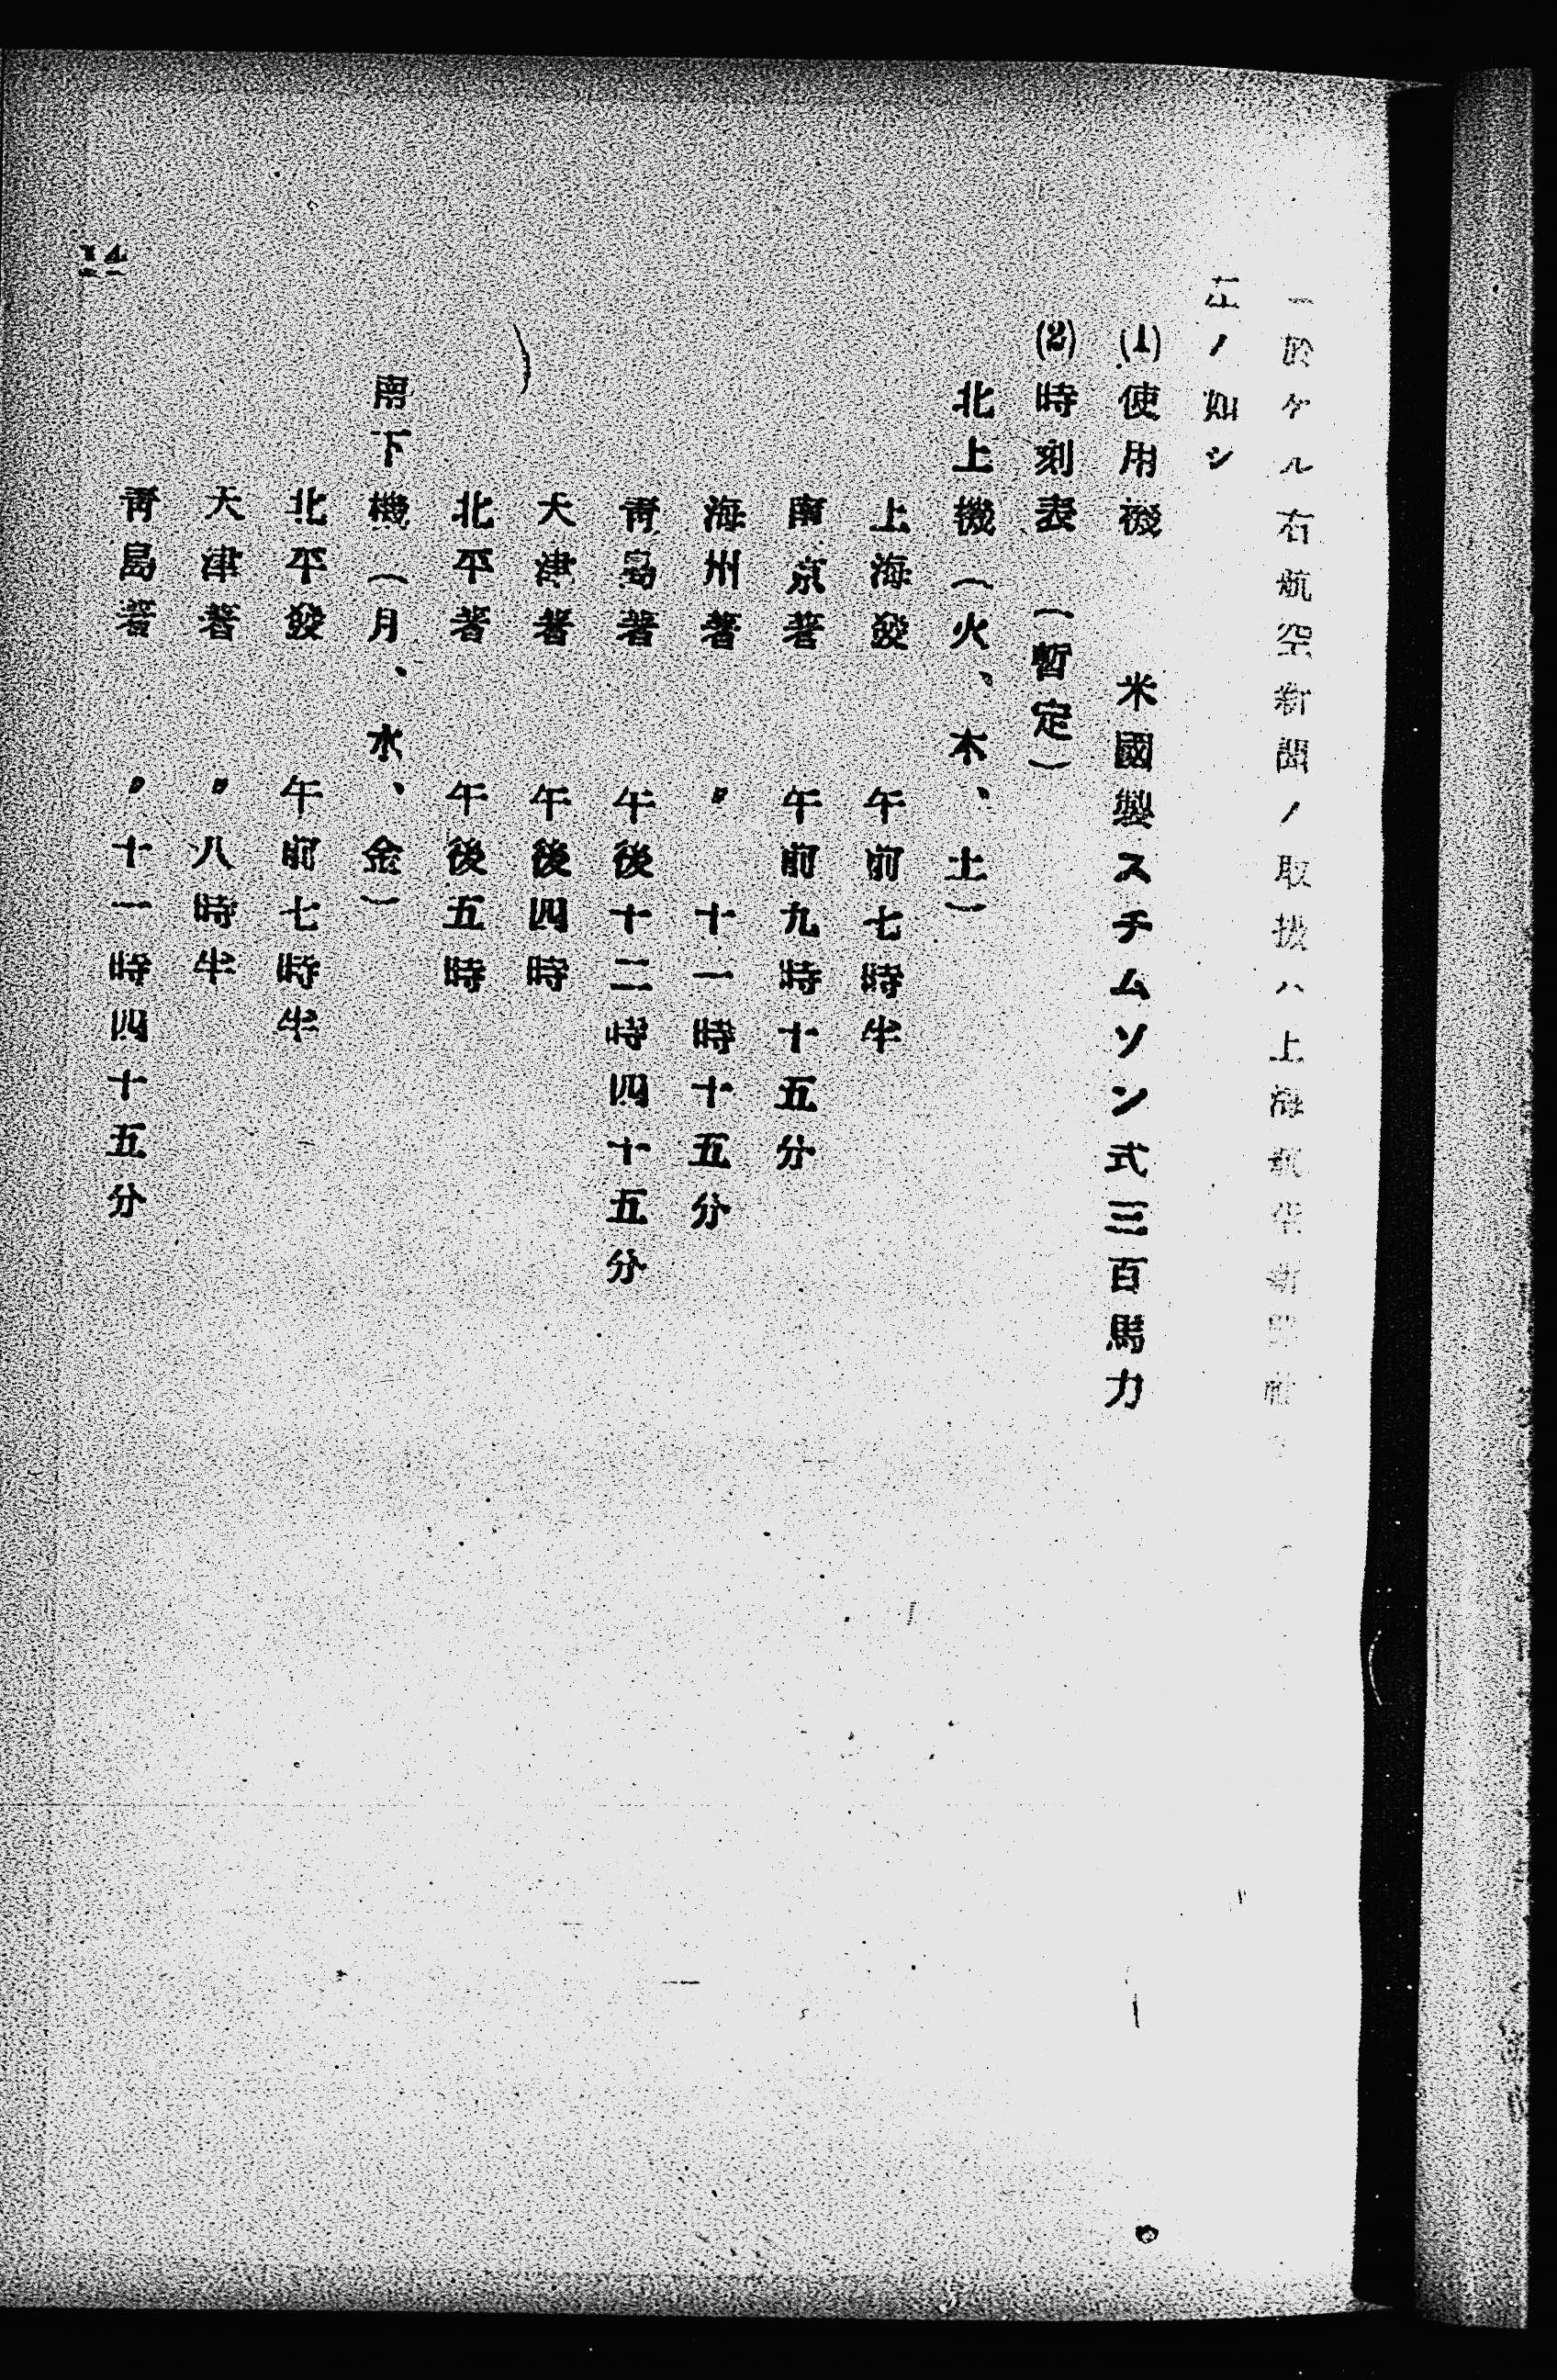 ニ於ケル右航空新聞ノ取扱ハ上海
左ノ如シ
(1)使用機 米國製スチムソン式三百馬力
(2)時刻表 (暫定)
北上機(火、木、土)
上海發 午前七時半
南京著 午前九時十五分
海州著 〃 十一時十五分
靑島著 午後十二時四十五分
天津著 午後四時
北平著 午後五時
南下機(月、水、金)
北平發 午前七時半
天津著 〃八時半
靑島著 〃十一時四十五分
14